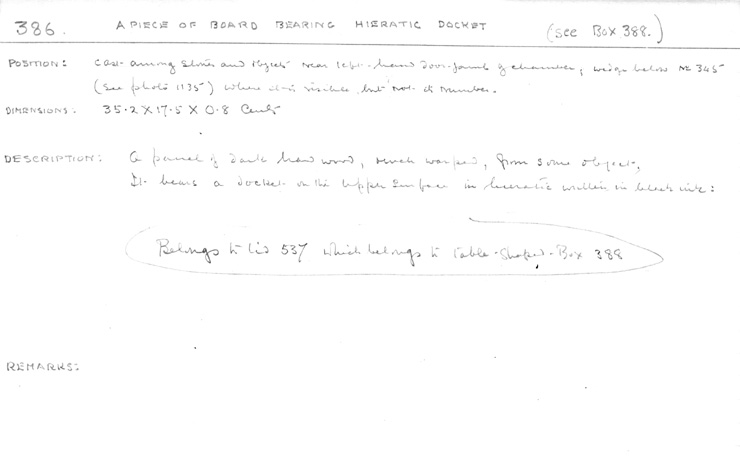 386. A PIECE OF BOARD BEARING HIERATIC DOCKET (see Box 388.)
POSITION: Cast among stones and objects near left-hand door-jamb of chamber, wedge below No 345
(see photo 1135) where it is visible, but not its number.
DIMENSIONS: 35.2 X 17.5 X 0.8 Cents
DESCRIPTION: A panel of dark hard wood, much warped, from some object,
It bears a docket on the upper surface in hieratic written in black ink:
Belongs to lid 537 which belongs to table-shaped-Box 388
REMARKS: